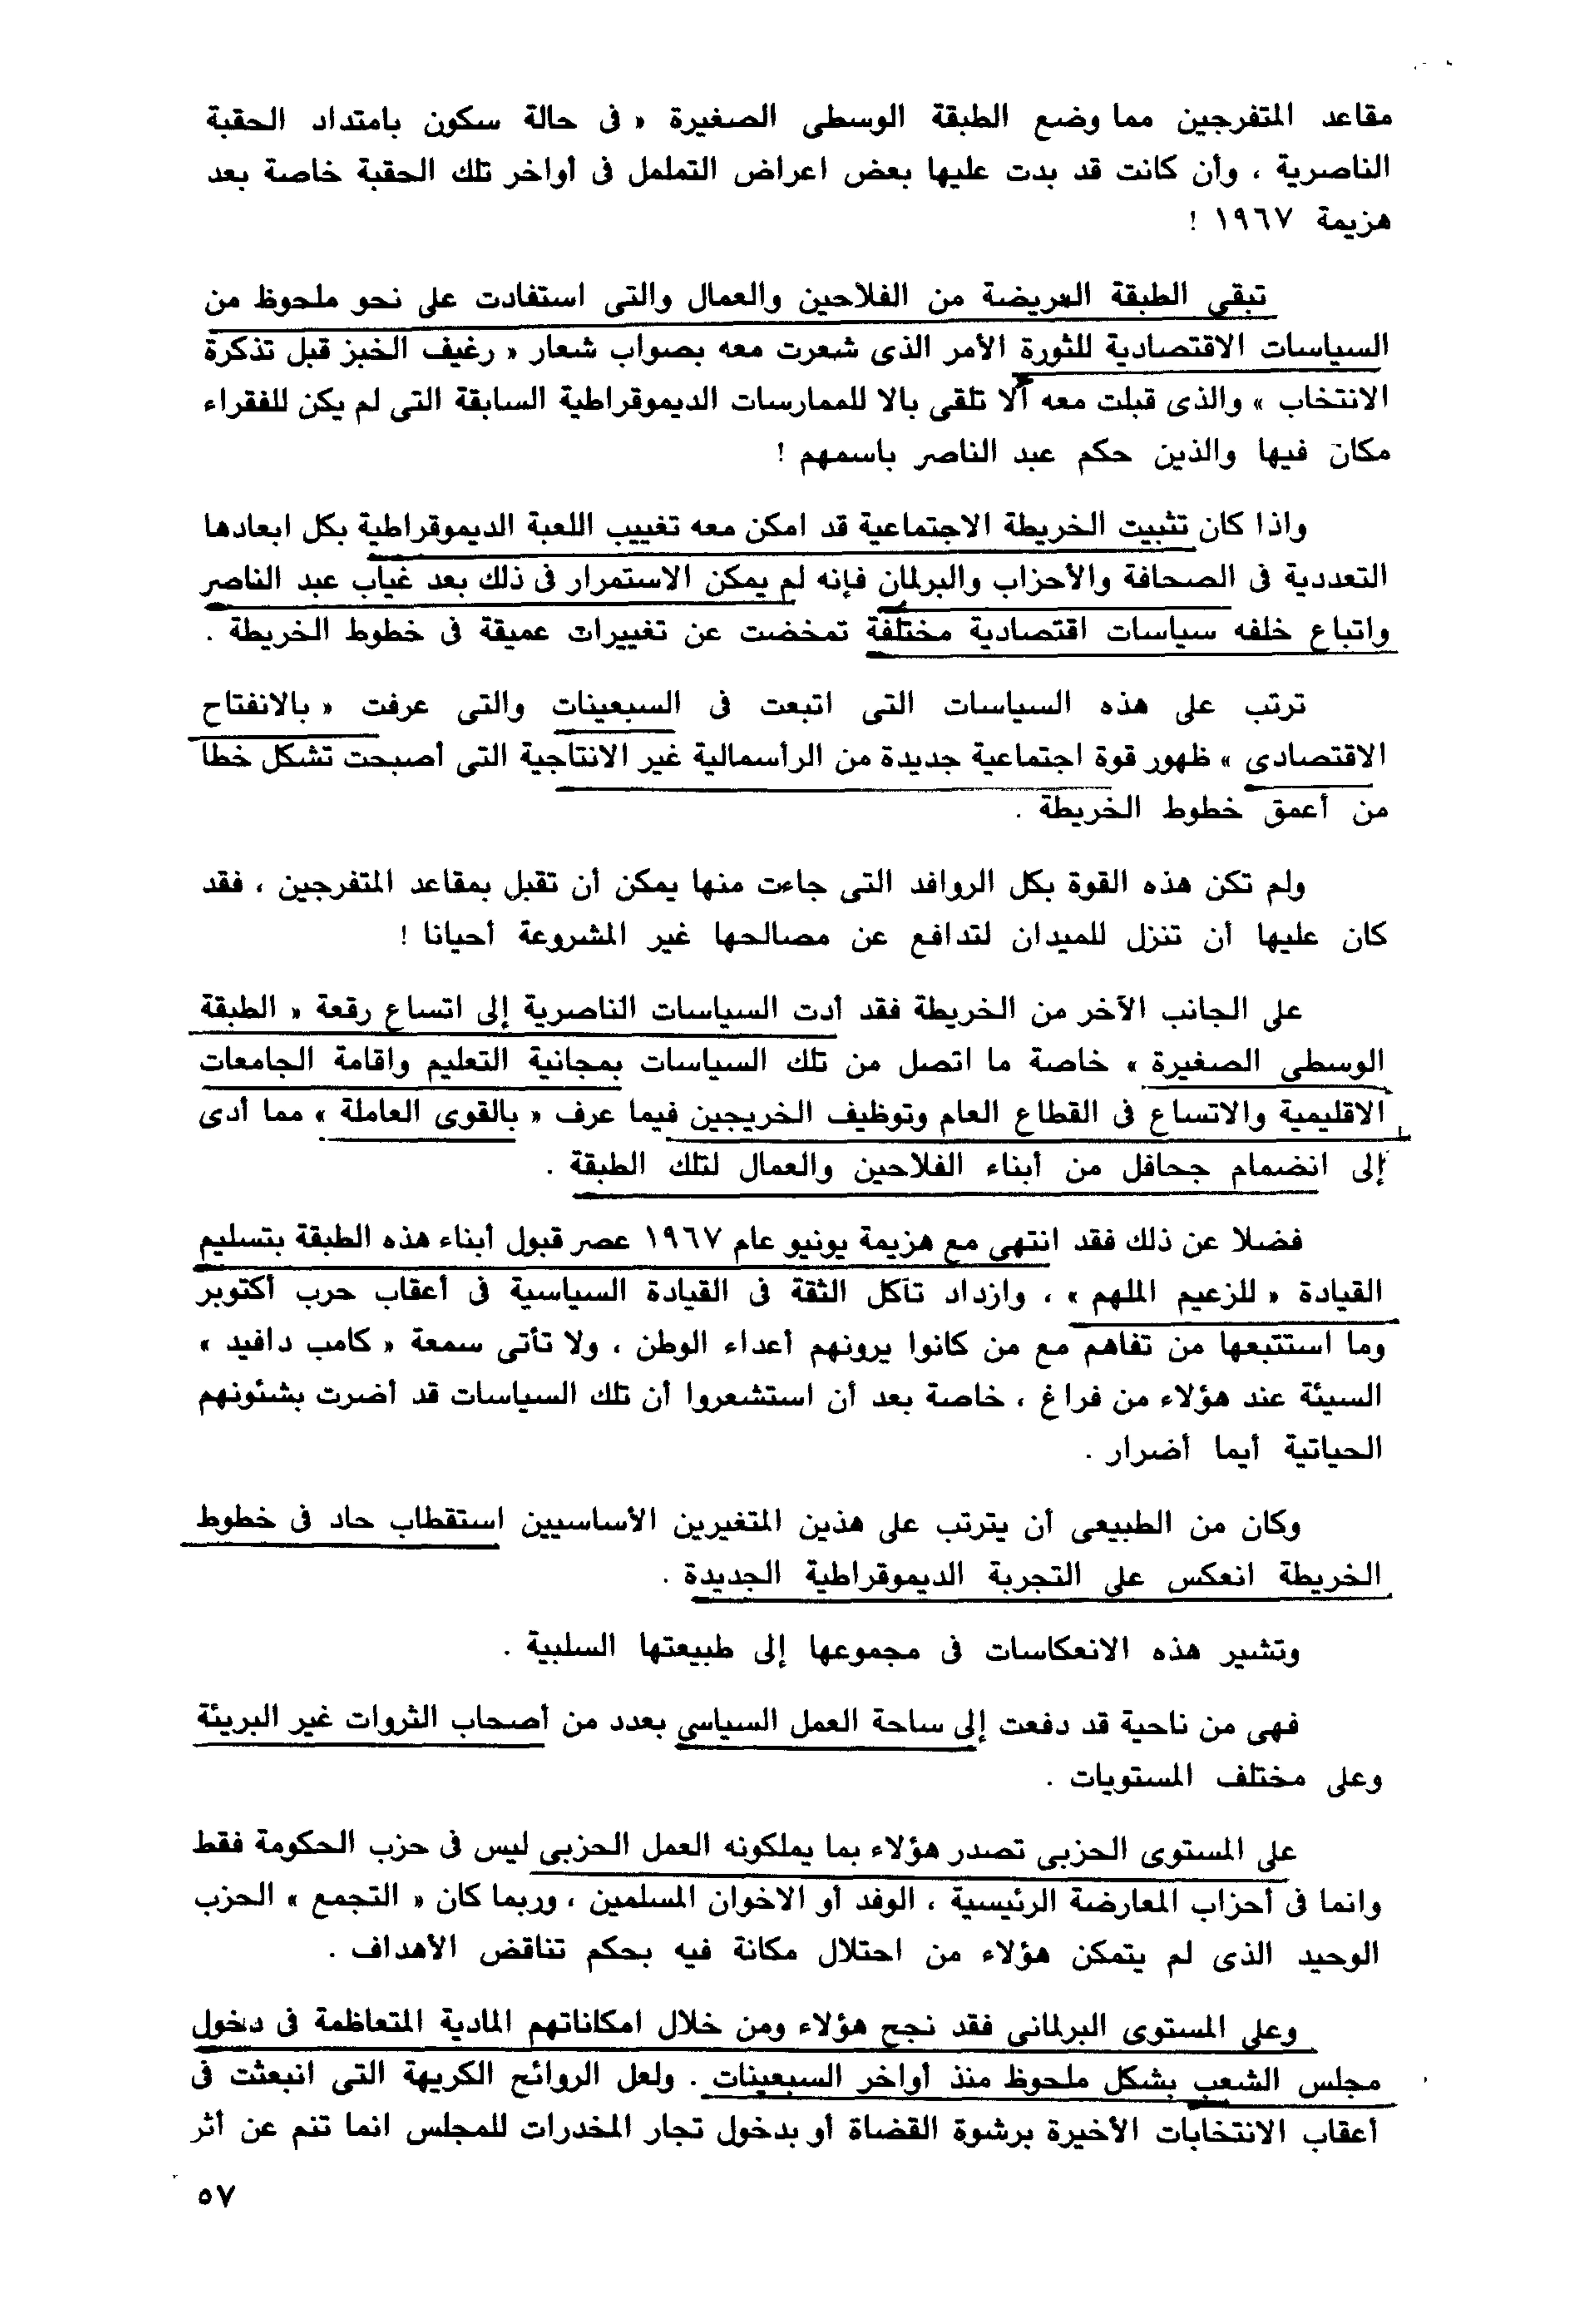 مقاعد المتفرجين مما وضع الطبقة الوسطى الصغيرة « فى حالة سكون بامتداد الحقبة
الناصرية ، وأن كانت قد بدت عليها بعض اعراض التململ فى أواخر تلك الحقبة خاصة بعد
هزيمة ١٩٦٧ !
تبقى الطبقة العريضة من الفلاحين والعمال والتى استفادت على نحو ملحوظ من
السياسات الاقتصادية للثورة الأمر الذى شعرت معه بصواب شعار « رغيف الخبز قبل تذكرة
الانتخاب » والذى قبلت معه ألا تلقى بالا للممارسات الديموقراطية السابقة التى لم يكن للفقراء
مكان فيها والذين حكم عبد الناصر باسمهم !
واذا كان تثبيت الخريطة الاجتماعية قد امكن معه تغييب اللعبة الديموقراطية بكل ابعادها
التعددية فى الصحافة والأحزاب والبرلمان فإنه لم يمكن الاستمرار فى ذلك بعد غياب عبد الناصر
واتباع خلفه سياسات اقتصادية مختلفة تمخضت عن تغييرات عميقة فى خطوط الخريطة .
ترتب على هذه السياسات التى اتبعت فى السبعينات والتى عرفت « بالانفتاح
الاقتصادى » ظهور قوة اجتماعية جديدة من الرأسمالية غير الانتاجية التى أصبحت تشكل خطا
من أعمق خطوط الخريطة .
ولم تكن هذه القوة بكل الروافد التى جاءت منها يمكن أن تقبل بمقاعد المتفرجين ، فقد
كان عليها أن تنزل للميدان لتدافع عن مصالحها غير المشروعة أحيانا !
على الجانب الآخر من الخريطة فقد أدت السياسات الناصرية إلى اتساع رقعة « الطبقة
الوسطى الصغيرة » خاصة ما اتصل من تلك السياسات بمجانية التعليم واقامة الجامعات
الاقليمية والاتساع فى القطاع العام وتوظيف الخريجين فيما عرف « بالقوى العاملة » مما أدى
إلى انضمام جحافل من أبناء الفلاحين والعمال لتلك الطبقة .
فضلا عن ذلك فقد انتهى مع هزيمة يونيو عام ١٩٦٧ عصر قبول أبناء هذه الطبقة بتسليم
القيادة « للزعيم الملهم » ، وازداد تآكل الثقة فى القيادة السياسية فى أعقاب حرب أكتوبر
وما استتبعها من تفاهم مع من كانوا يرونهم أعداء الوطن ، ولا تأتى سمعة « كامب دافيد »
السيئة عند هؤلاء من فراغ ، خاصة بعد أن استشعروا أن تلك السياسات قد أضرت بشئونهم
الحياتية أيما أضرار .
وكان من الطبيعى أن يترتب على هذين المتغيرين الأساسيين استقطاب حاد فى خطوط
الخريطة انعكس على التجربة الديموقراطية الجديدة .
وتشير هذه الانعكاسات فى مجموعها إلى طبيعتها السلبية .
فهى من ناحية قد دفعت إلى ساحة العمل السياسي بعدد من أصحاب الثروات غير البريئة
وعلى مختلف المستويات .
على المستوى الحزبى تصدر هؤلاء بما يملكونه العمل الحزبى ليس فى حزب الحكومة فقط
وانما فى أحزاب المعارضة الرئيسية ، الوفد أو الاخوان المسلمين ، وربما كان « التجمع » الحزب
الوحيد الذى لم يتمكن هؤلاء من احتلال مكانة فيه بحكم تناقض الأهداف .
وعلى المستوى البرلمانى فقد نجح هؤلاء ومن خلال امكاناتهم المادية المتعاظمة فى دخول
مجلس الشعب بشكل ملحوظ منذ أواخر السبعينات . ولعل الروائح الكريهة التى انبعثت فى
أعقاب الانتخابات الأخيرة برشوة القضاة أو بدخول تجار المخدرات للمجلس انما تنم عن أثر
٥٧